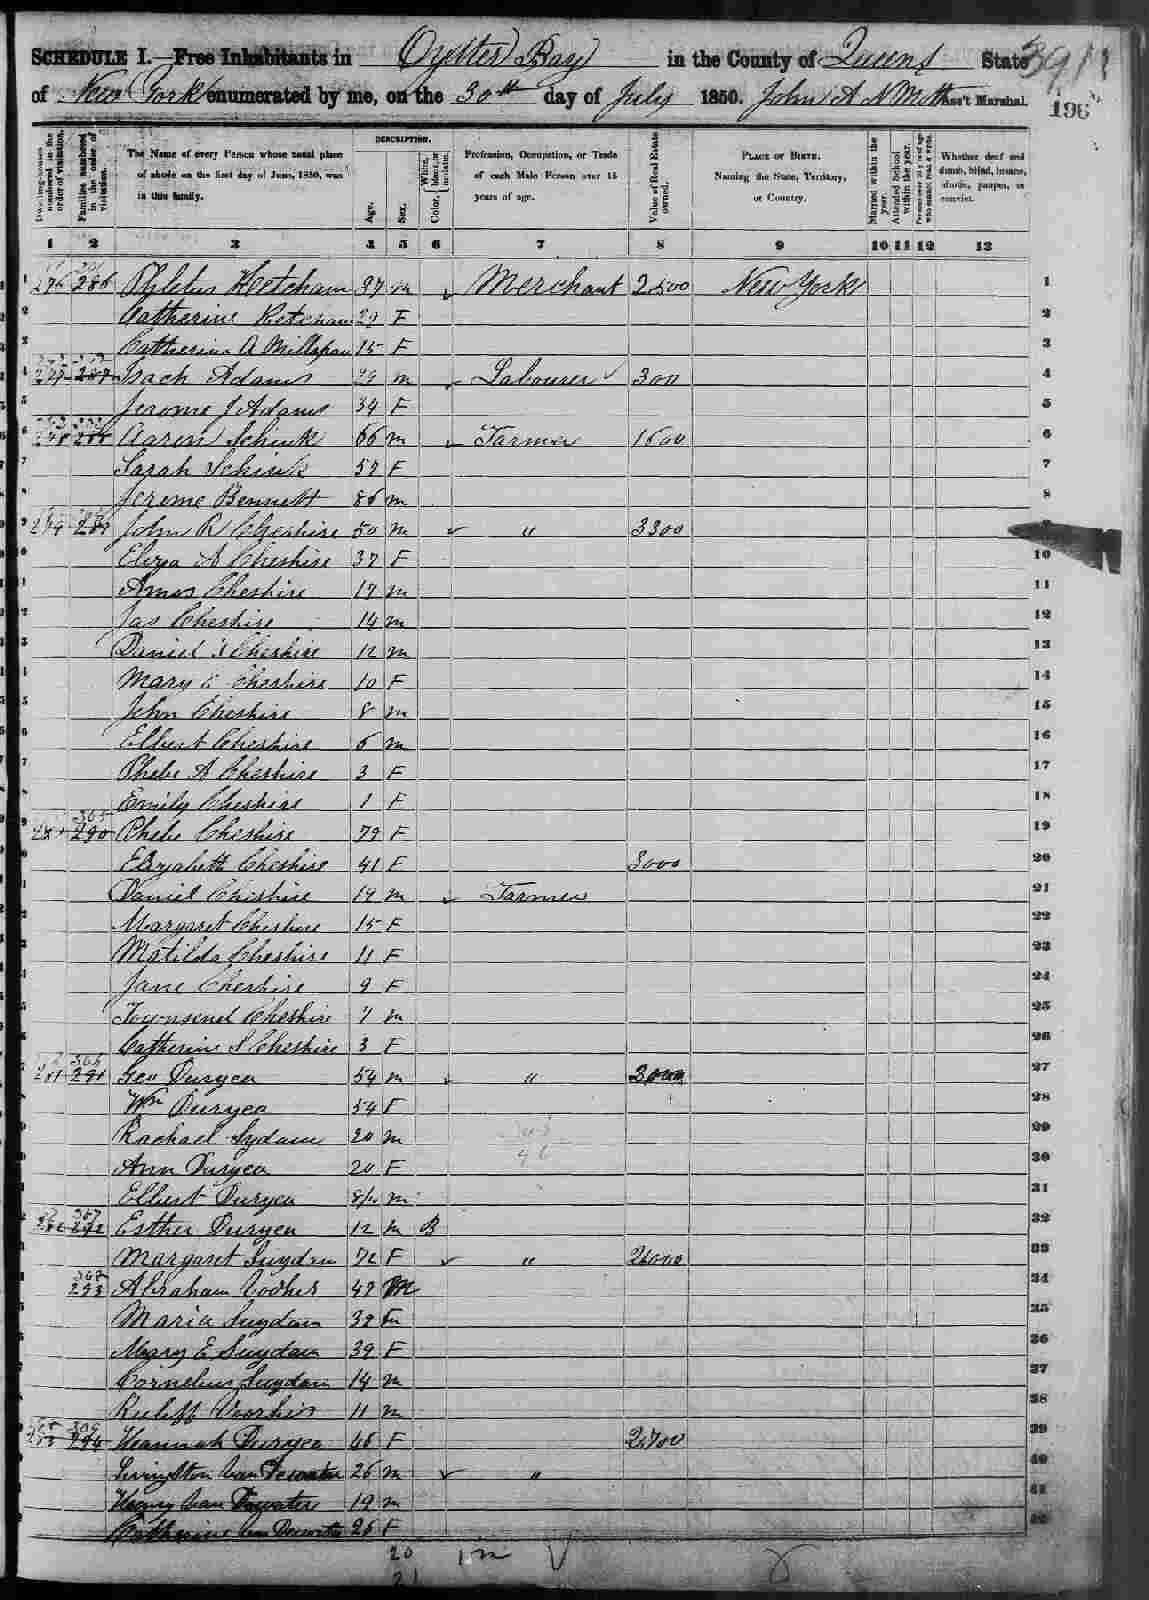 SCHEDULE I.—Free Inhabitants in Oyster Bay in the County of Queens State
of New York enumerated by me, on the 30th day of July 1850. John A N Mott Ass't Marshal.
196
Dwelling-houses numbered in the order of visitation.
Families numbered in the order of visitation.
The Name of every Person whose usual place of abode on the first day of June, 1850, was in this family.
DESCRIPTION.
Age.
Sex.
Color, White, black, or mulatto.
Profession, Occupation, or Trade of each Male Person over 15 years of age.
Value of Real Estate owned.
PLACE OF BIRTH. Naming the State, Territory, or Country.
Married within the year.
Attended School within the year.
Whether deaf and dumb, blind, insane, idiotic, pauper, or convict.
1 2 3 4 5 6 7 8 9 10 11 12 13
1 276 286 Ketcham 37 m Merchant 2500 New York 1
2 Catherine Ketcham 29 F 2
3 Catherine A 15 F 3
4 287 Isach Adams 29 m Labourer 300 4
5 Jerome J Adams 34 F 5
6 Aaron Schenk 66 m Farmer 1600 6
7 Sarah Schenk 59 F 7
8 Jerome Bennett 86 m 8
279 John R Cheshire 50 m " 3300
Eliza A Cheshire 37 F 10
Amos Cheshire 17 m 11
Jas Cheshire 14 m 12
Daniel Cheshire 12 m 13
Mary E Cheshire 10 F 14
John Cheshire 8 m 15
Elbert Cheshire 6 m 16
Phebe A Cheshire 3 F 17
Emily Cheshire 1 F 18
305
290 Phebe Cheshire 79 F 19
Elizabeth Cheshire 41 F 3000 20
Daniel Cheshire 19 m Farmer 21
Margaret Cheshire 15 F 22
Matilda Cheshire 11 F 23
Jane Cheshire 9 F 24
Townsend Cheshire 7 m 25
Catherine S Cheshire 3 F 26
281 291 Geo Duryea 54 m " 3000 27
Wm Duryea 54 F 28
Rachael Sydam 20 m 29
Ann Duryea 20 F 30
Elbert Duryea m 31
367
292 Esther Duryea 12 m B 32
Margaret Suydam 72 F " 33
293 Abraham 47 M 34
Maria Suydam 35
Mary E Suydam 39 F 36
Cornelius Suydam 14 m 37
Ruleff Voorhies 11 m 38
294 Hannah Duryea F 39
Livingston Van Dewater 26 m " 40
Henry Van Dewater 19 m 41
Catherine Van Dewater 26 F 42
20 1 m
21